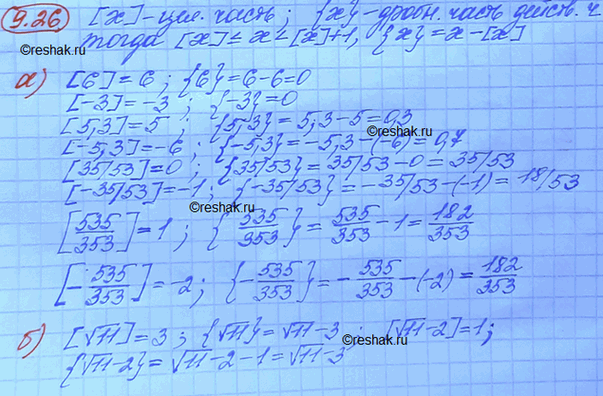 9.26 [x] - цел. часть; {x} - дробн. часть действ. ч.
тогда [x] ≤ x ≤ [x]+1, {x} = x - [x]
а) [6] = 6; {6} = 6-6=0
[-3] = -3; {-3} = 0
[5,3] = 5; {5,3} = 5,3-5 = 0,3
[-5,3] = -6; {-5,3} = -5,3-(-6) = 0,7
[35/53] = 0; {35/53} = 35/53 - 0 = 35/53
[-35/53] = -1; {-35/53} = -35/53 - (-1) = 18/53
[535/353] = 1; {535/353} = 535/353 - 1 = 182/353
[-535/353] = -2; {-535/353} = -535/353 - (-2) = 182/353
б) [√11] = 3; {√11} = √11-3; [√11-2] = 1;
{√11-2} = √11-2-1 = √11-3
©Reshak.ru
©Reshak.ru
©Reshak.ru
©Reshak.ru